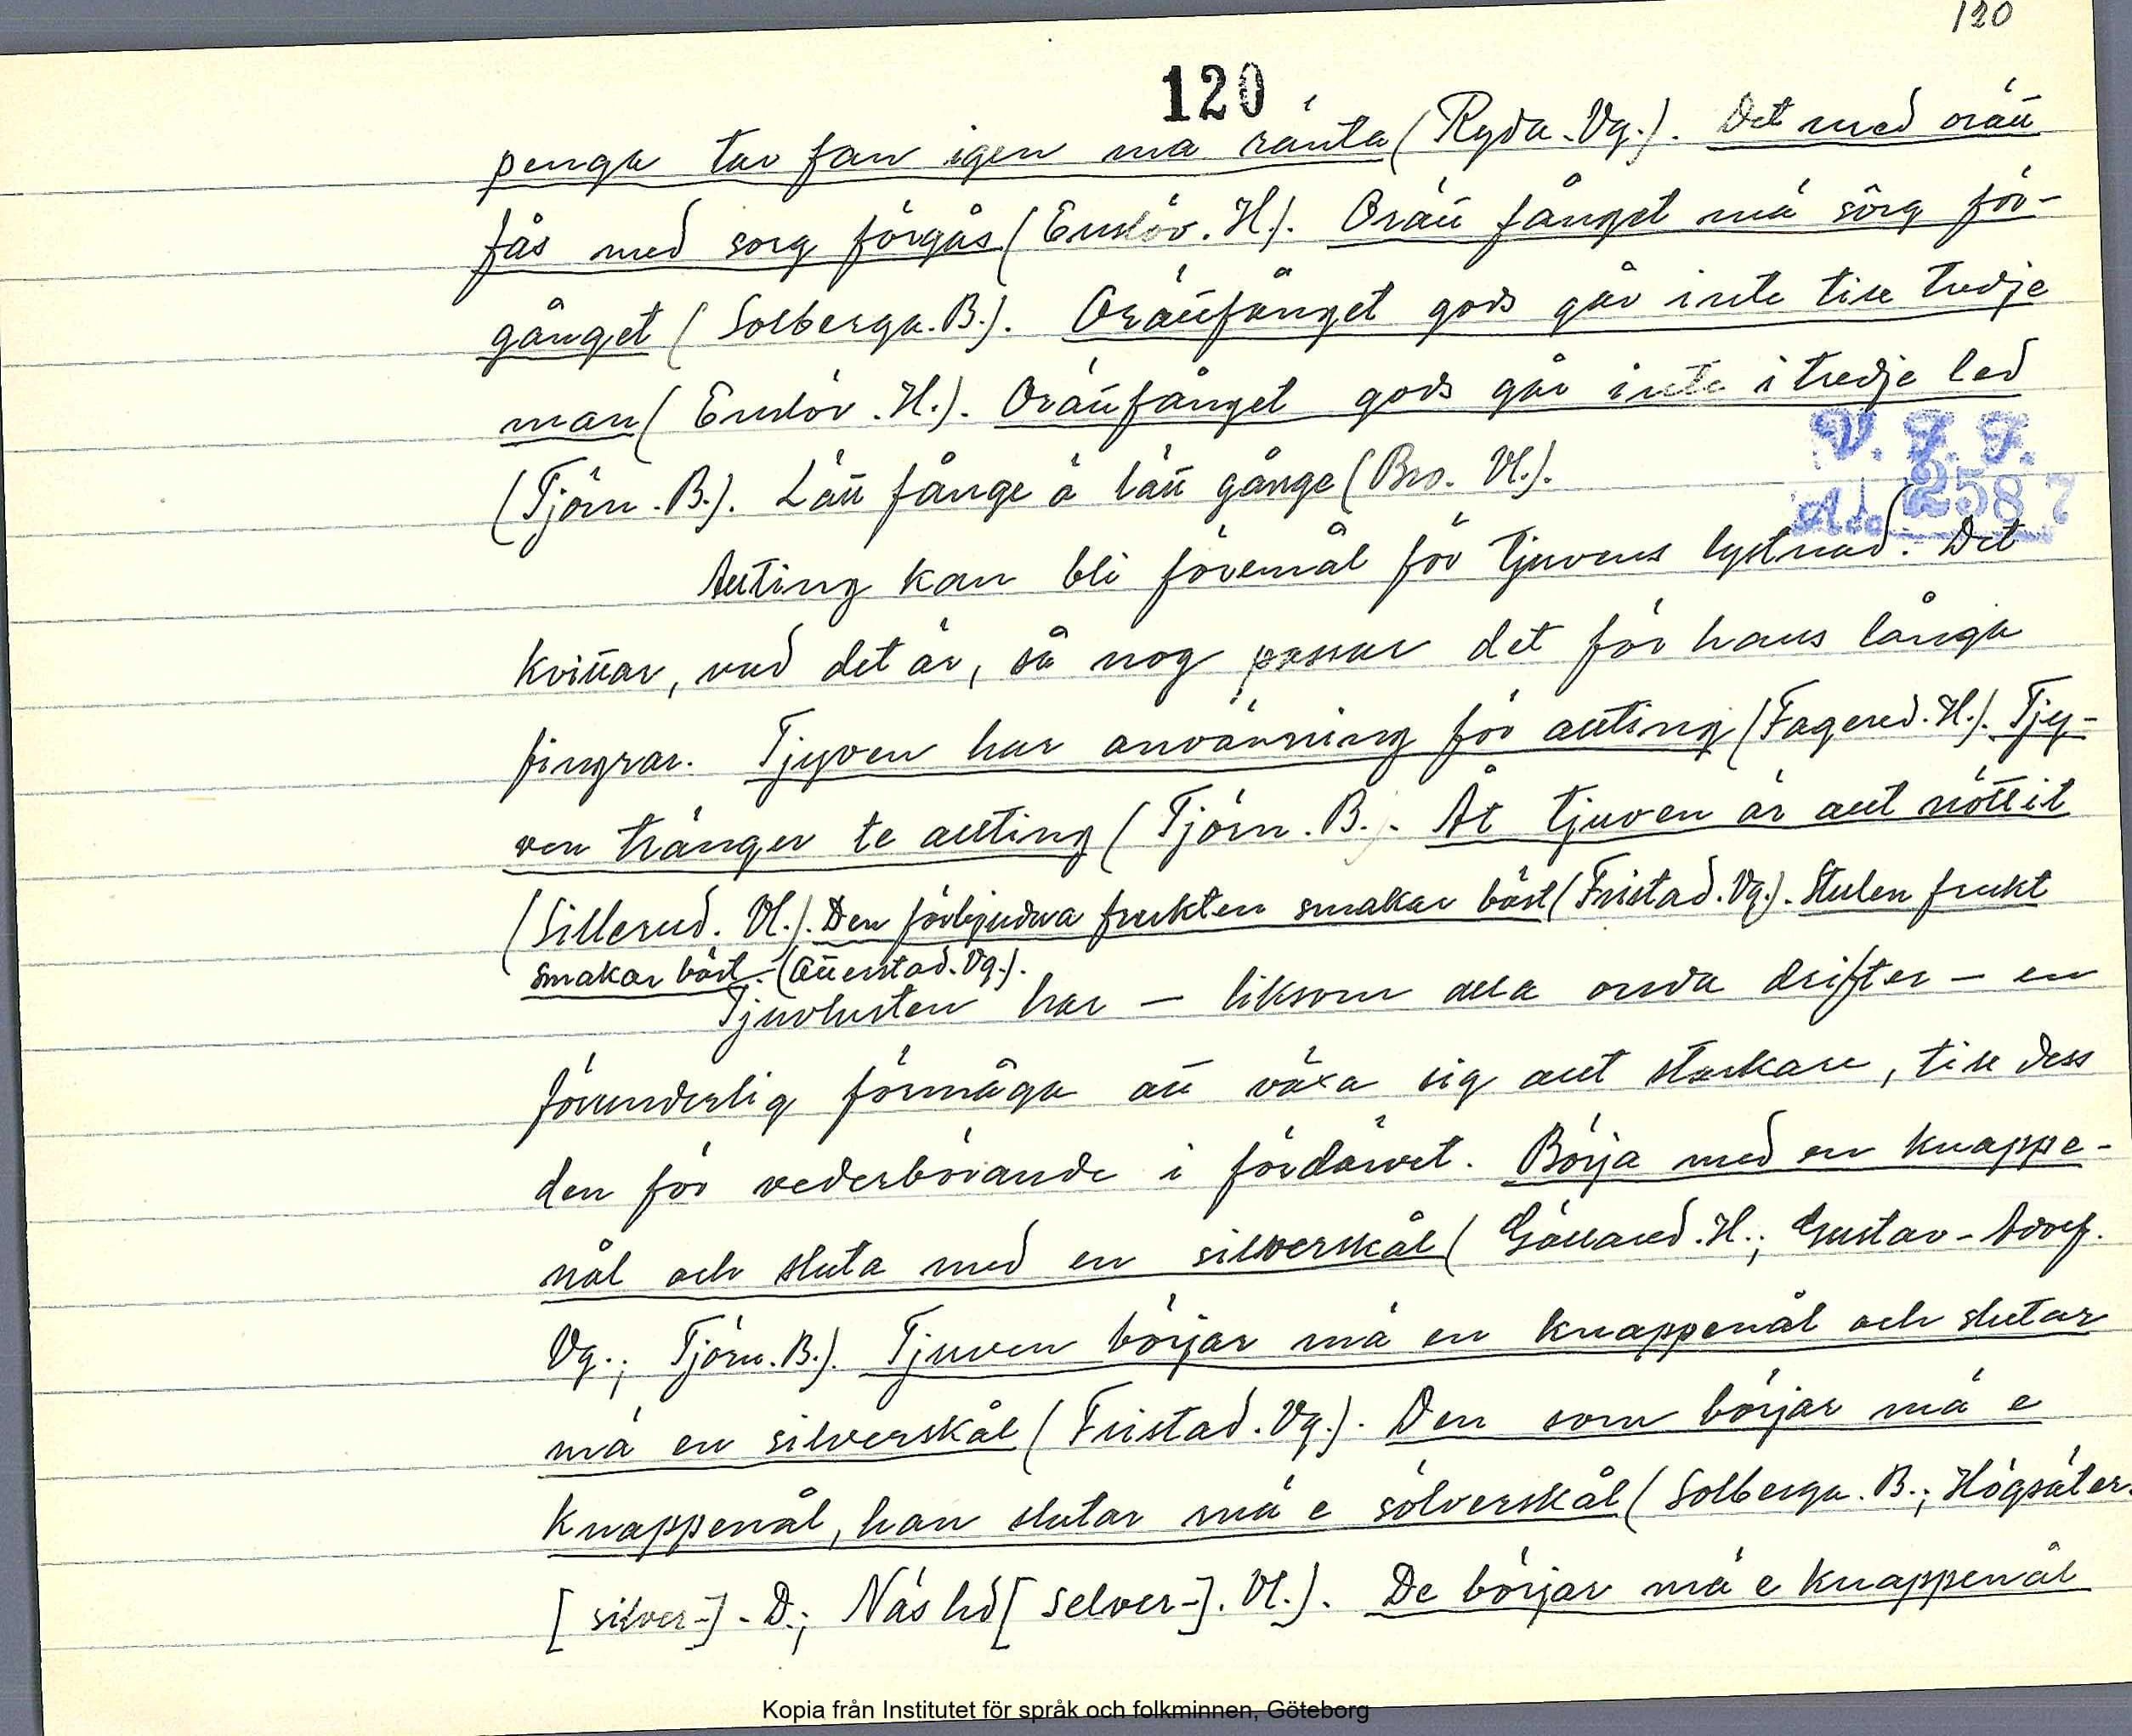 120
120
penga tar fan igen mä ränta (Ryda. Vg.). Det med orätt
fås med sorg förgås (Enslöv. H.). Orätt fånget mä sörg för-
gånget (Solberga. B.). Orättfånget gods går inte till tredje
man (Enslöv. H.). Orättfånget gods går inte i tredje led
(Tjörn. B.). Lätt fånge ä lätt gånge (Bro. Vl.).
V. F. F.
Acc. 2587
Allting kan bli föremål för tjuvens lystnad. Det
kvittar, vad det är, så nog passar det för hans långa
fingrar. Tjyven har använning för allting (Fagered. H.). Tjy-
ven tränger te allting (Tjörn. B.). Åt tjuven är allt nöttit
(Sillerud. Vl.). Den förbjudna frukten smakar bäst (Fristad. Vg.). Stulen frukt
smakar bäst. (Otterstad. Vg.).
Tjuvlusten har – liksom alla onda drifter – en
förunderlig förmåga att växa sig allt starkare, till dess
den för vederbörande i fördärvet. Börja med en knappe-
nål och sluta med en silverskål (Gällared. H.; Gustav-Adolf.
Vg.; Tjörn. B.). Tjuven börjar mä en knappenål och slutar
mä en silverskål (Fristad. Vg.). Den som börjar mä e
knappenål, han slutar mä e sölverskål (Solberga. B.; Högsäter.
[silver-]. D.; Näs hd [selver-]. Vl.). De börjar mä e knappenål
Kopia från Institutet för språk och folkminnen, Göteborg